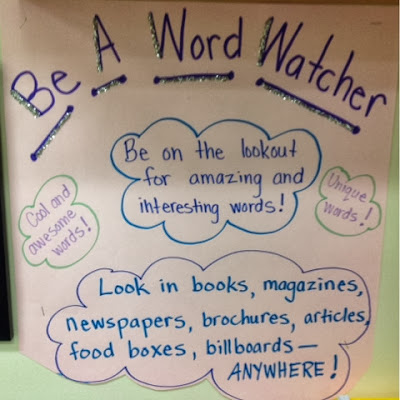 Be A Word Watcher
Be on the lookout
for amazing and
interesting words!
Cool and
awesome
words!
Unique
words!
Look in books, magazines,
newspapers, brochures, articles,
food boxes, billboards—
ANYWHERE!